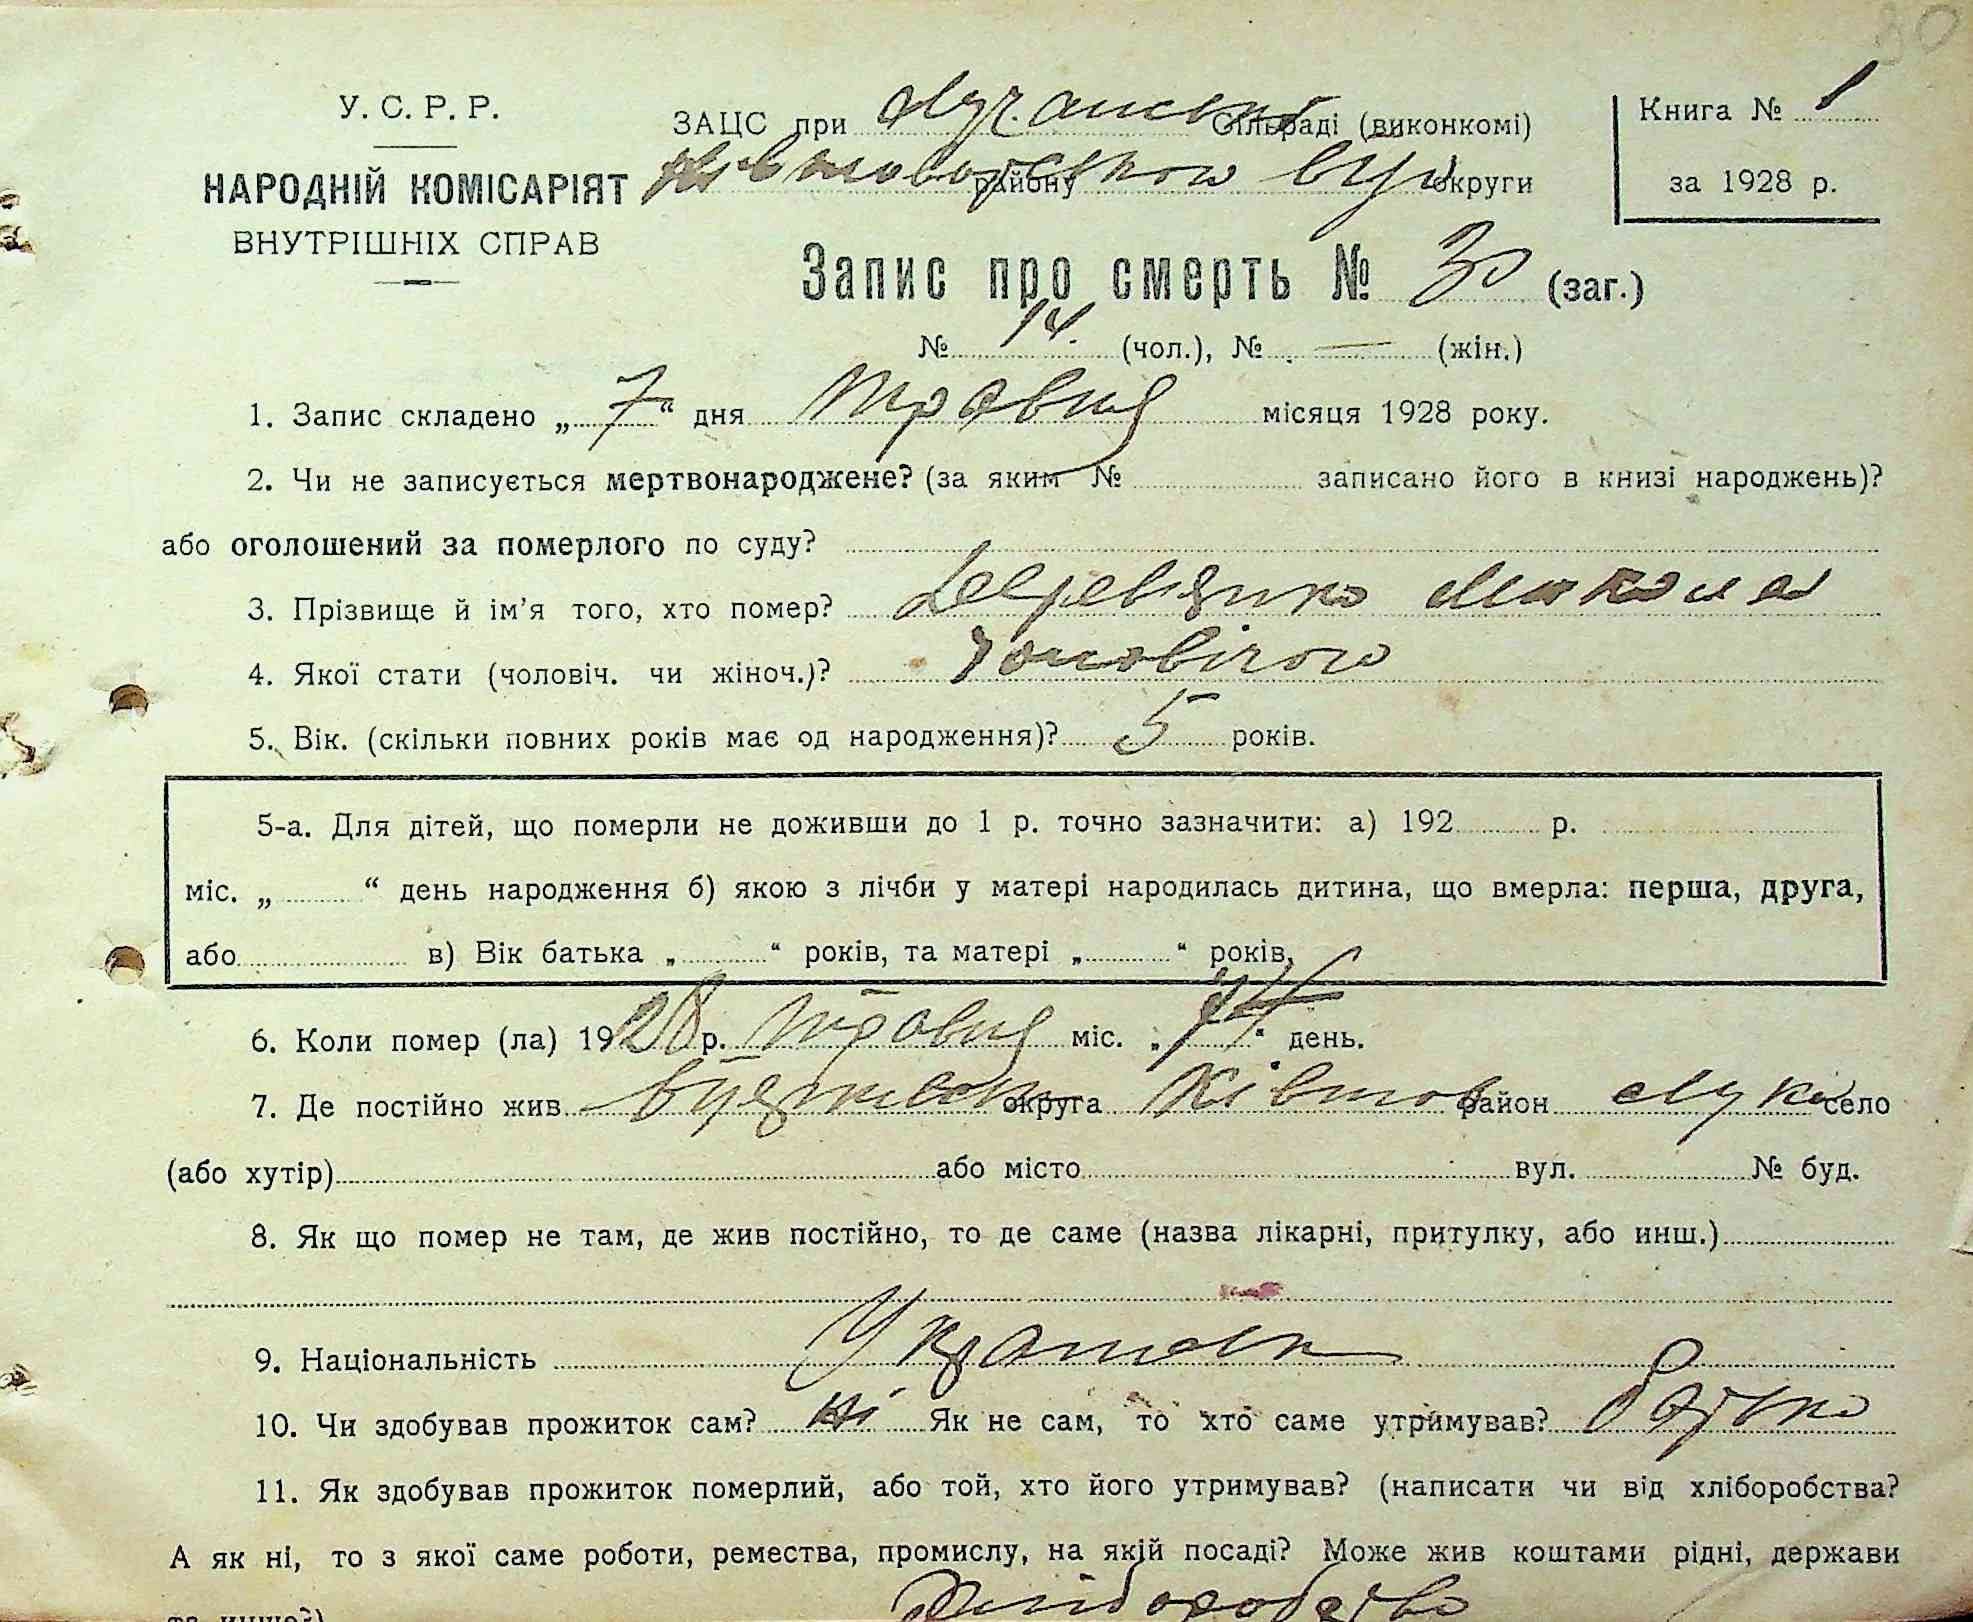 80
У. С. Р. Р.
НАРОДНІЙ КОМІСАРІЯТ
ВНУТРІШНІХ СПРАВ
ЗАЦС при Сільраді (виконкомі)
району округи
Книга № 1
за 1928 р.
Запис про смерть № 30 (заг.)
№ 14. (чол.), № — (жін.)
1. Запис складено „ 7 “ дня травня місяця 1928 року.
2. Чи не записується мертвонароджене? (за яким № записано його в книзі народжень)?
або оголошений за померлого по суду?
3. Прізвище й ім’я того, хто помер? Деревянко Микола
4. Якої стати (чоловіч. чи жіноч.)? чоловічою
5. Вік. (скільки повних років має од народження)? 5 років.
5-а. Для дітей, що померли не доживши до 1 р. точно зазначити: а) 192 р.
міс. „ “ день народження б) якою з лічби у матері народилась дитина, що вмерла: перша, друга,
або в) Вік батька „ “ років, та матері „ “ років.
6. Коли помер (ла) 1928 р. травня міс. „ “ день.
7. Де постійно жив округа район село
(або хутір) або місто вул. № буд.
8. Як що помер не там, де жив постійно, то де саме (назва лікарні, притулку, або инш.)
9. Національність
10. Чи здобував прожиток сам? ні Як не сам, то хто саме утримував? Батько
11. Як здобував прожиток померлий, або той, хто його утримував? (написати чи від хліборобства?
А як ні, то з якої саме роботи, ремества, промислу, на якій посаді? Може жив коштами рідні, держави
та инше?) Хліборобство